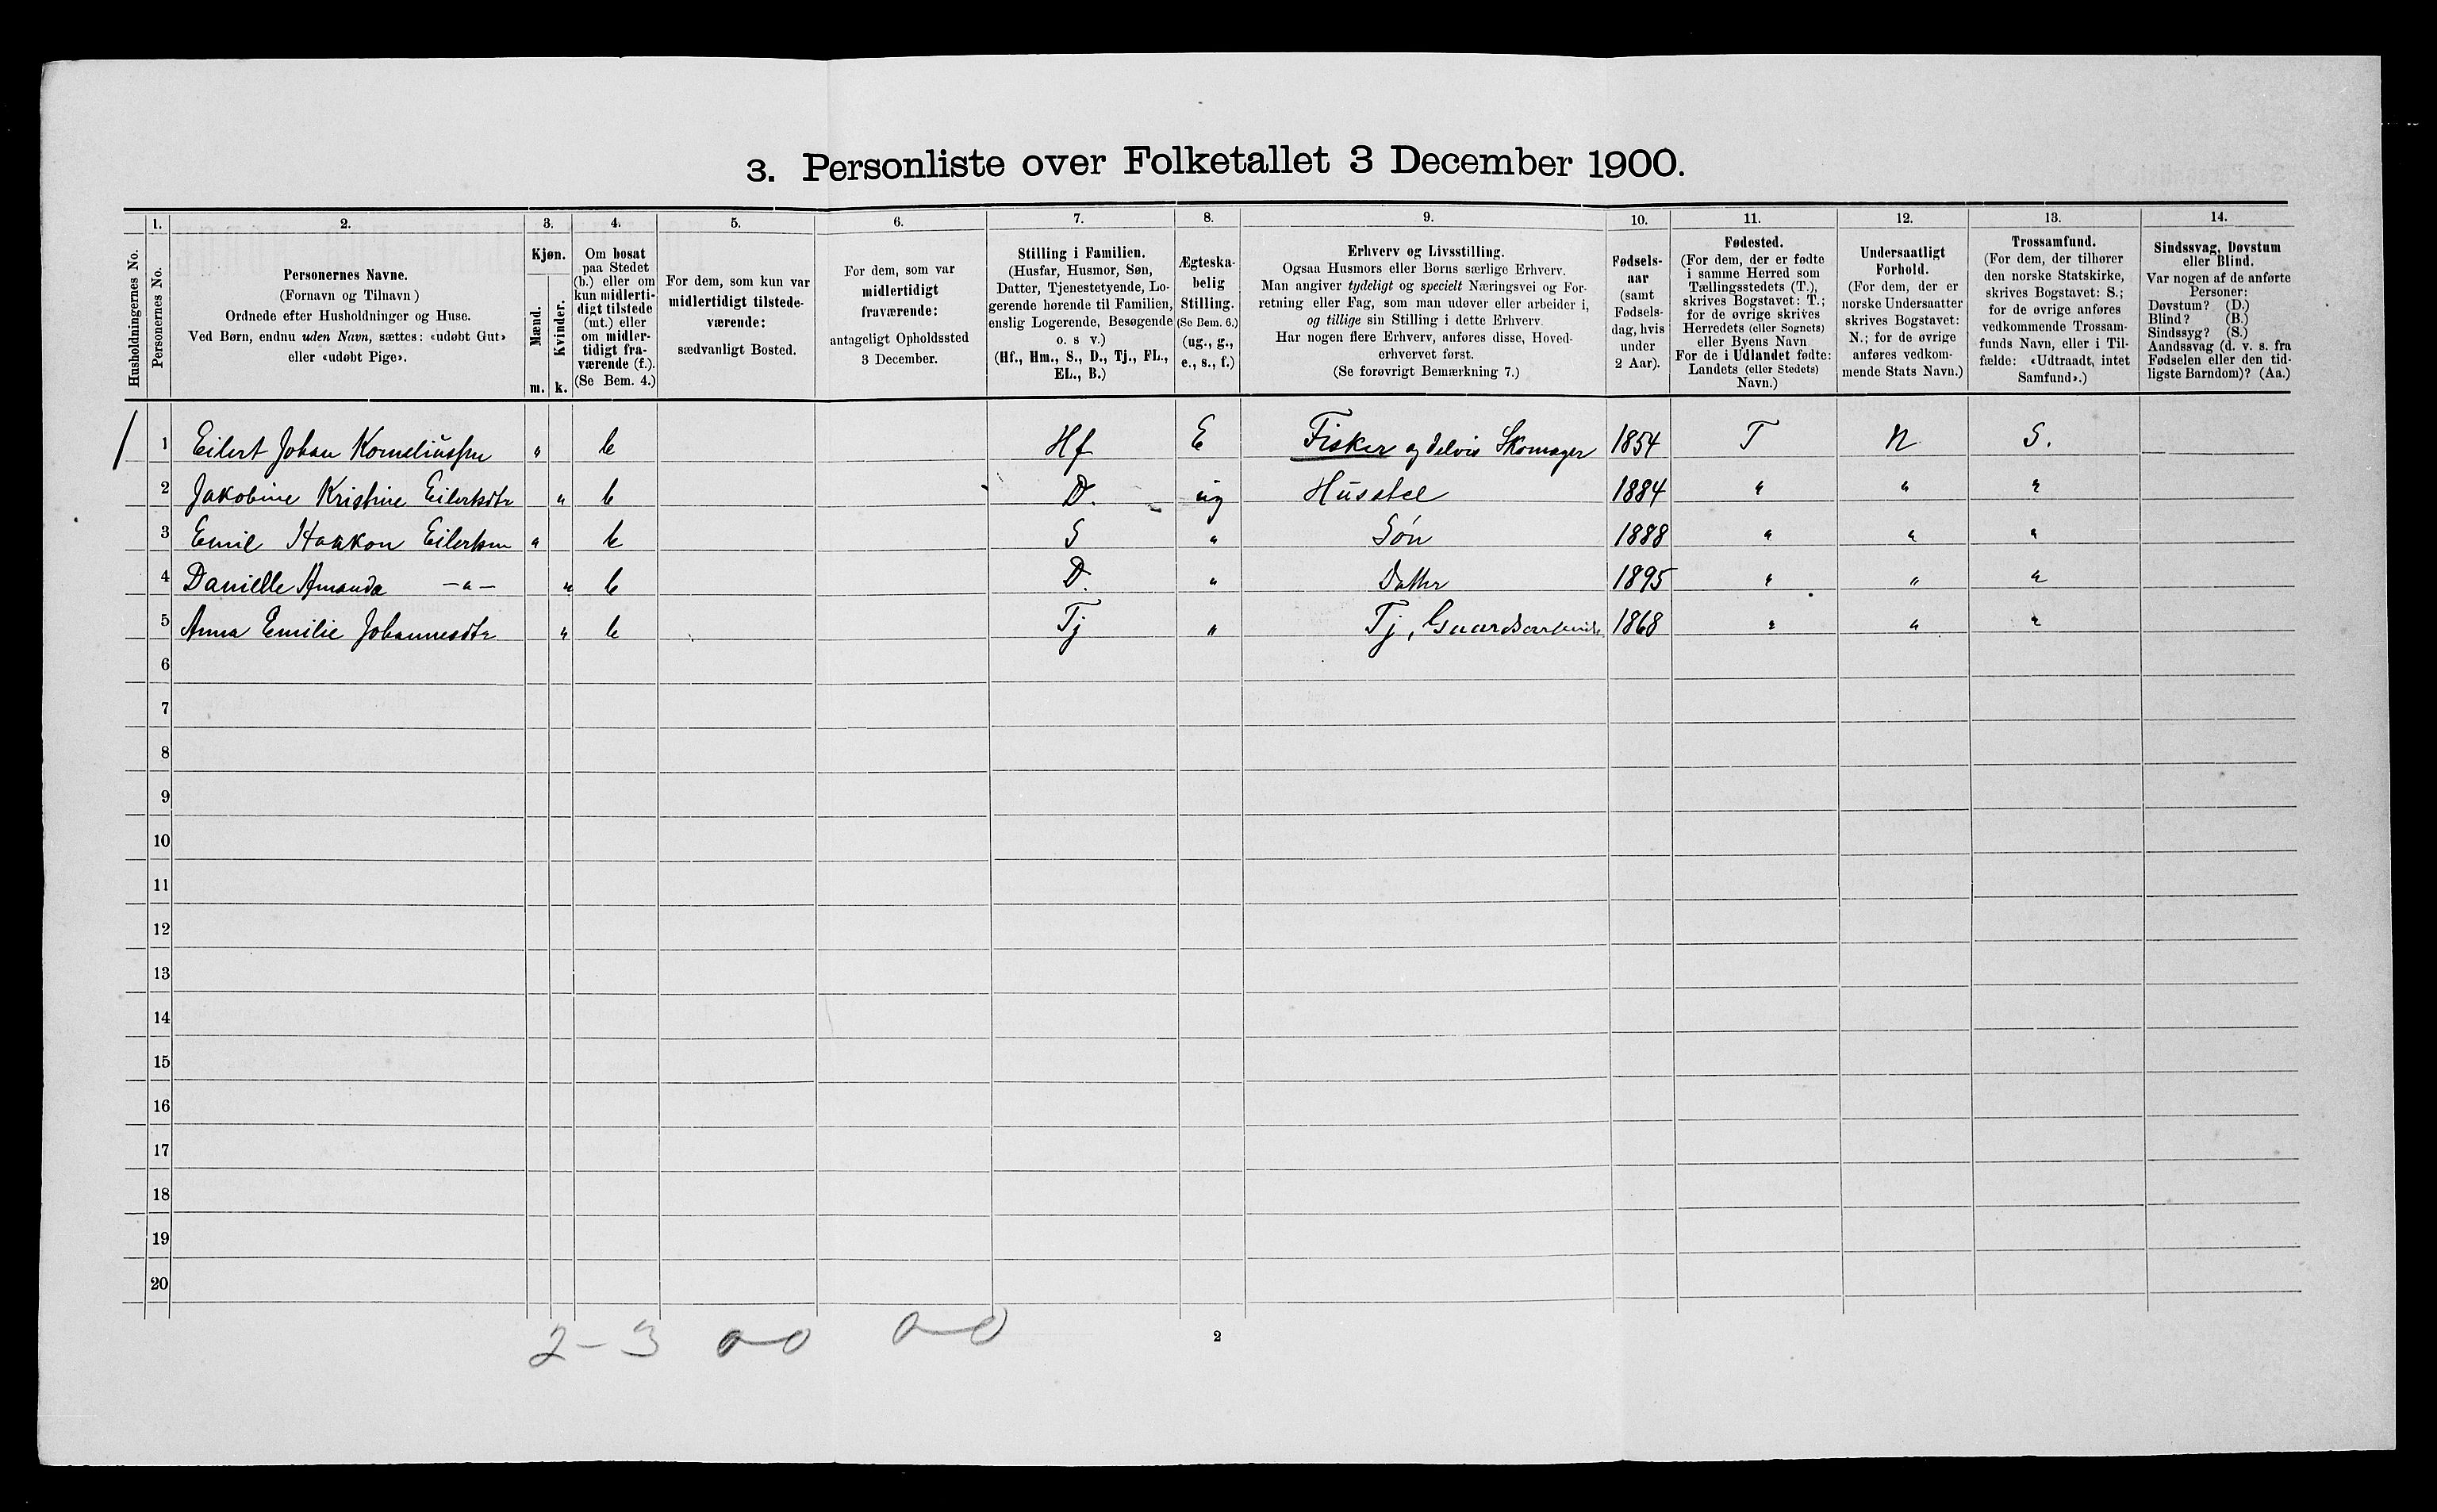 3. Personliste over Folketallet 3 December 1900.
Husholdningernes No.
1. Personernes No.
2. Personernes Navne.
(Fornavn og Tilnavn)
Ordnede efter Husholdninger og Huse.
Ved Børn, endnu uden Navn, sættes: «udøbt Gut»
eller «udøbt Pige».
3. Kjøn.
Mænd. m.
Kvinder. k.
4. Om bosat
paa Stedet
(b.) eller om
kun midlerti-
digt tilstede
(mt.) eller
om midler-
tidigt fra-
værende (f.).
(Se Bem. 4.)
5. For dem, som kun var
midlertidigt tilstede-
værende:
sædvanligt Bosted.
6. For dem, som var
midlertidigt
fraværende:
antageligt Opholdssted
3 December.
7. Stilling i Familien.
(Husfar, Husmor, Søn,
Datter, Tjenestetyende, Lo-
gerende hørende til Familien,
enslig Logerende, Besøgende
o. s v.)
(Hf., Hm., S., D., Tj., FL.,
EL., B.)
8. Ægteska-
belig
Stilling.
(Se Bem. 6.)
(ug., g.,
e., s., f.)
9. Erhverv og Livsstilling.
Ogsaa Husmors eller Børns særlige Erhverv.
Man angiver tydeligt og specielt Næringsvei og For-
retning eller Fag, som man udøver eller arbeider i,
og tillige sin Stilling i dette Erhverv.
Har nogen flere Erhverv, anføres disse, Hoved-
erhvervet først.
(Se forøvrigt Bemærkning 7.)
10. Fødsels-
aar
(samt
Fødsels-
dag, hvis
under
2 Aar).
11. Fødested.
(For dem, der er fødte
i samme Herred som
Tællingsstedets (T.),
skrives Bogstavet: T.;
for de øvrige skrives
Herredets (eller Sognets)
eller Byens Navn
For de i Udlandet fødte:
Landets (eller Stedets)
Navn.)
12. Undersaatligt
Forhold.
(For dem, der er
norske Undersaatter
skrives Bogstavet:
N.; for de øvrige
anføres vedkom-
mende Stats Navn.)
13. Trossamfund.
(For dem, der tilhører
den norske Statskirke,
skrives Bogstavet: S.;
for de øvrige anføres
vedkommende Trossam-
funds Navn, eller i Til-
fælde: «Udtraadt, intet
Samfund».)
14. Sindssvag, Døvstum
eller Blind.
Var nogen af de anførte
Personer:
Døvstum? (D.)
Blind? (B.)
Sindssyg? (S.)
Aandssvag (d. v. s. fra
Fødselen eller den tid-
ligste Barndom)? (Aa.)
1 1 Eilert Johan Korneliussen " b Hf E Fisker og delvis Skomager 1854 T N S.
2 Jakobine Kristine Eilertsdtr " b D. ug Husstel 1884 " " "
3 Emil Haakon Eilertsen " b S " Søn 1888 " " "
4 Danielle Amanda —"— " b D. " Datter 1895 " " "
5 Anna Emilie Johannesdtr " b Tj " Tj, 1868 " " "
6
7
8
9
10
11
12
13
14
15
16
17
18
19
20
2-3 0-0 0-0
2